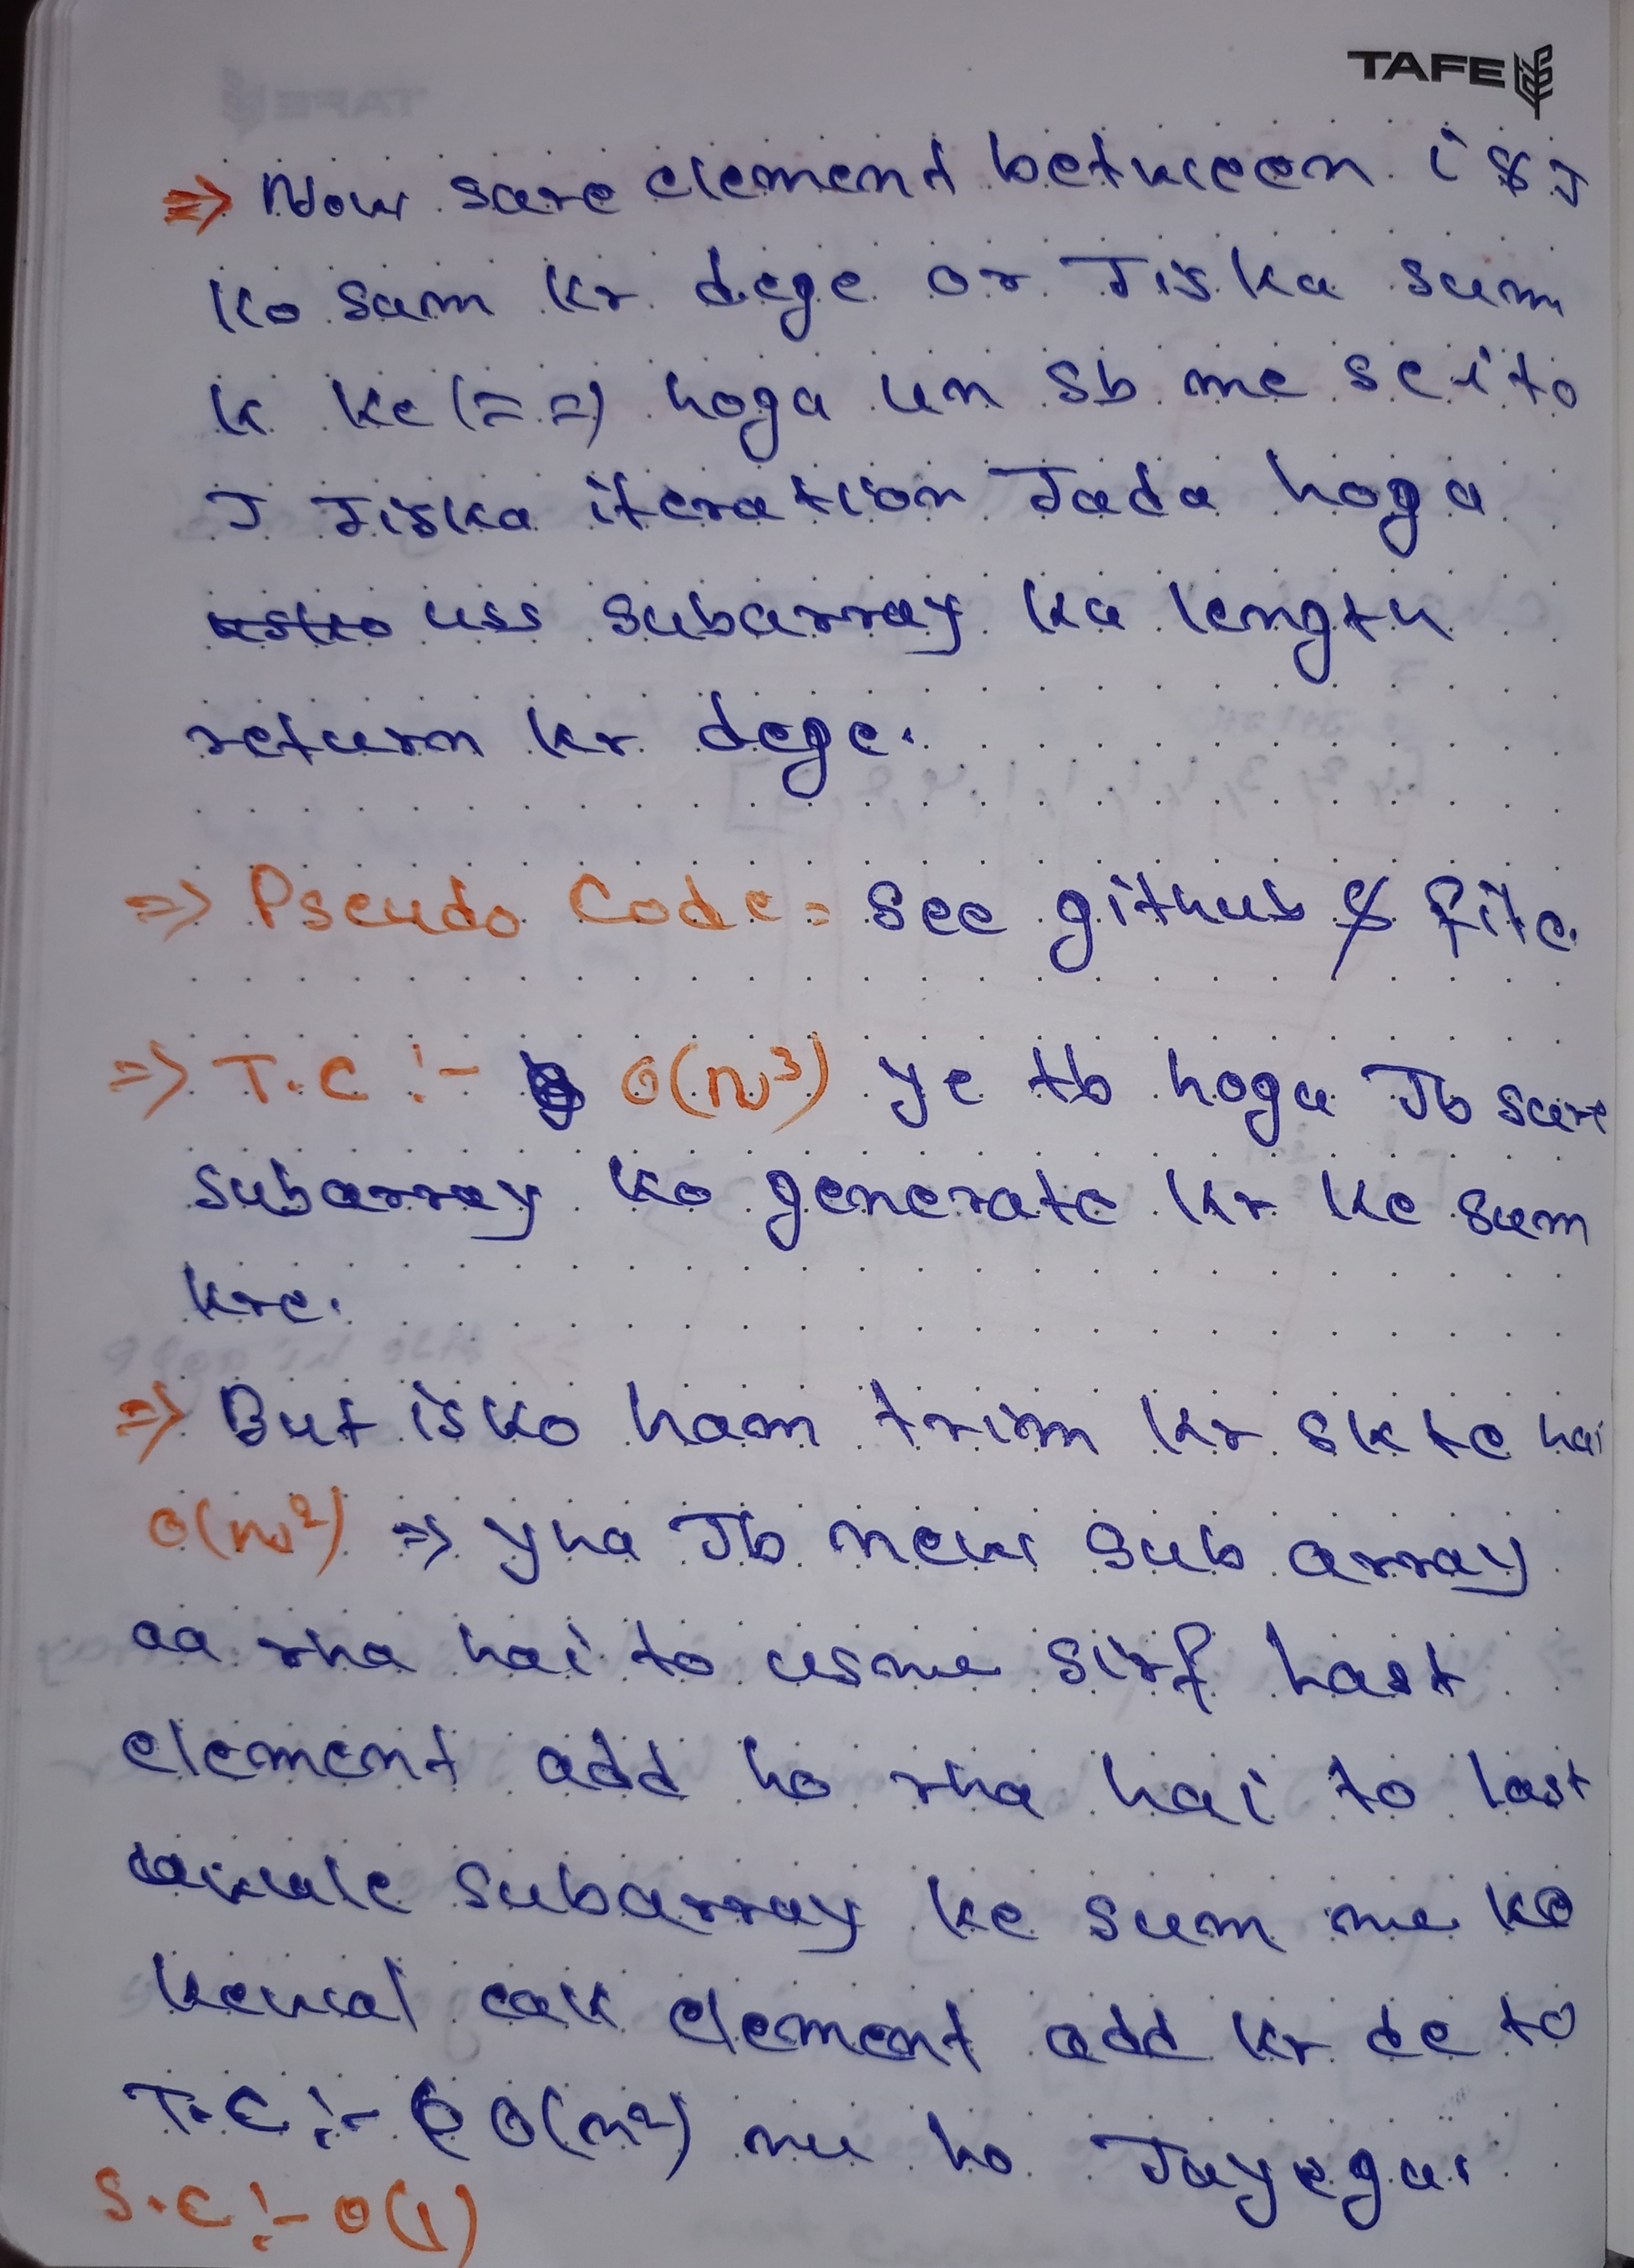 TAFE
⇒ Now sare element between i & J
ko sum kr dege or Jiska sum
k ke (==) hoga un sb me se i to
J Jiska iteration Jada hoga
usko uss subarray ka length
return kr dege.
⇒ Pseudo Code = see github & file.
⇒ T.C :- O(n³) ye tb hoga Jb sare
subarray ko generate kr ke sum
kre.
⇒ But isko ham trim kr skte hai
O(n²) ⇒ yha Jb new sub array
aa rha hai to usme sirf last
element add ho rha hai to last
wale subarray ke sum me
kewal eak element add kr de to
T.C :- O(n²) me ho Jayega.
S.C :- O(1)